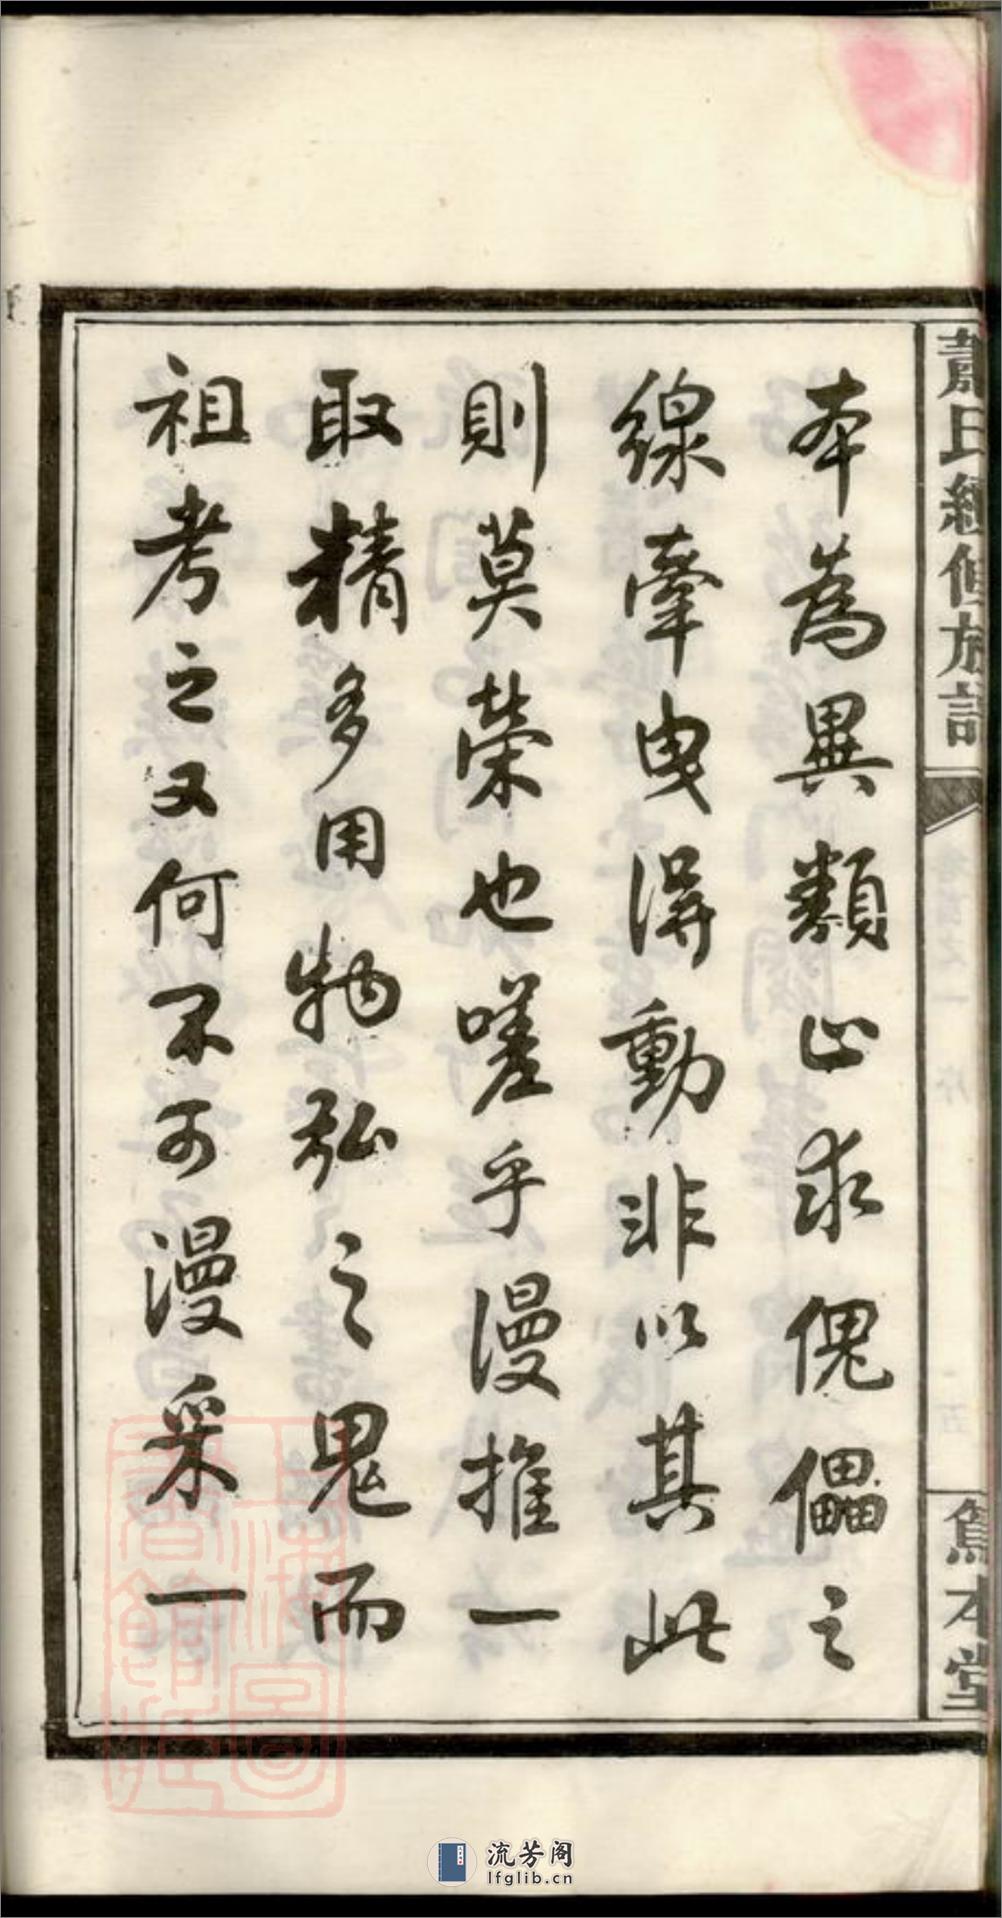 本為異類心求傀儡之
線牽曳得動非以其此
則莫榮也嗟乎漫推一
取精多用物弘之鬼而
祖考之又何不可漫采一
蕭氏續修族譜
篤本堂
流芳阁
lfglib.cn